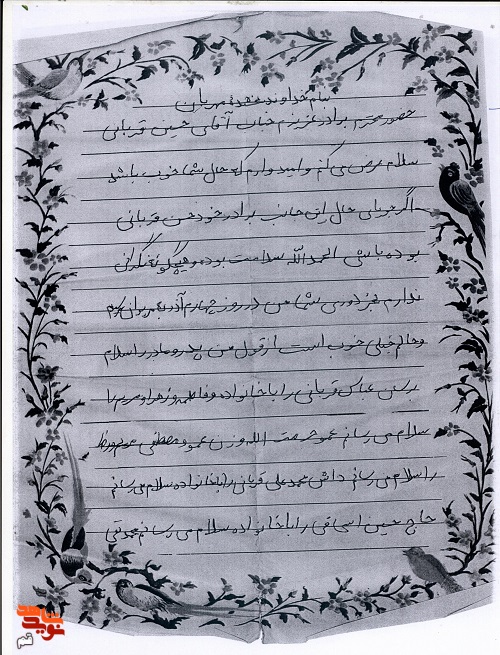 بنام خداوند بخشنده مهربان
حضور محترم برادر عزیزم جناب آقای حسین قربانی
سلام عرض می کنم و امیدوارم که حال شما خوب باشد
اگر جویای حال این جانب برادر خود حسن قربانی
بوده باشی الحمدالله سلامت بوده و هیچگونه نگرانی
ندارم بجز دوری شما من در روز چهارم آذر
و حالم خیلی خوب است از قول من پدر و مادر را سلام
برسان عباس قربانی را با خانواده و فاطمه و زهرا و مریم را
سلام می رسانم عمو حشمت الله و زن عمو و مصطفی
را سلام می رسانم داش محمد علی قربانی را با خانواده سلام می رسانم
حاج حسین اسحاقی را با خانواده سلام می رسانم محمد تقی
نوید شاهد